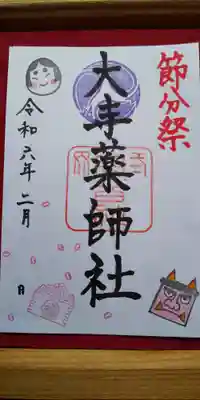 節分祭
大薬師社
令和六年二月 日